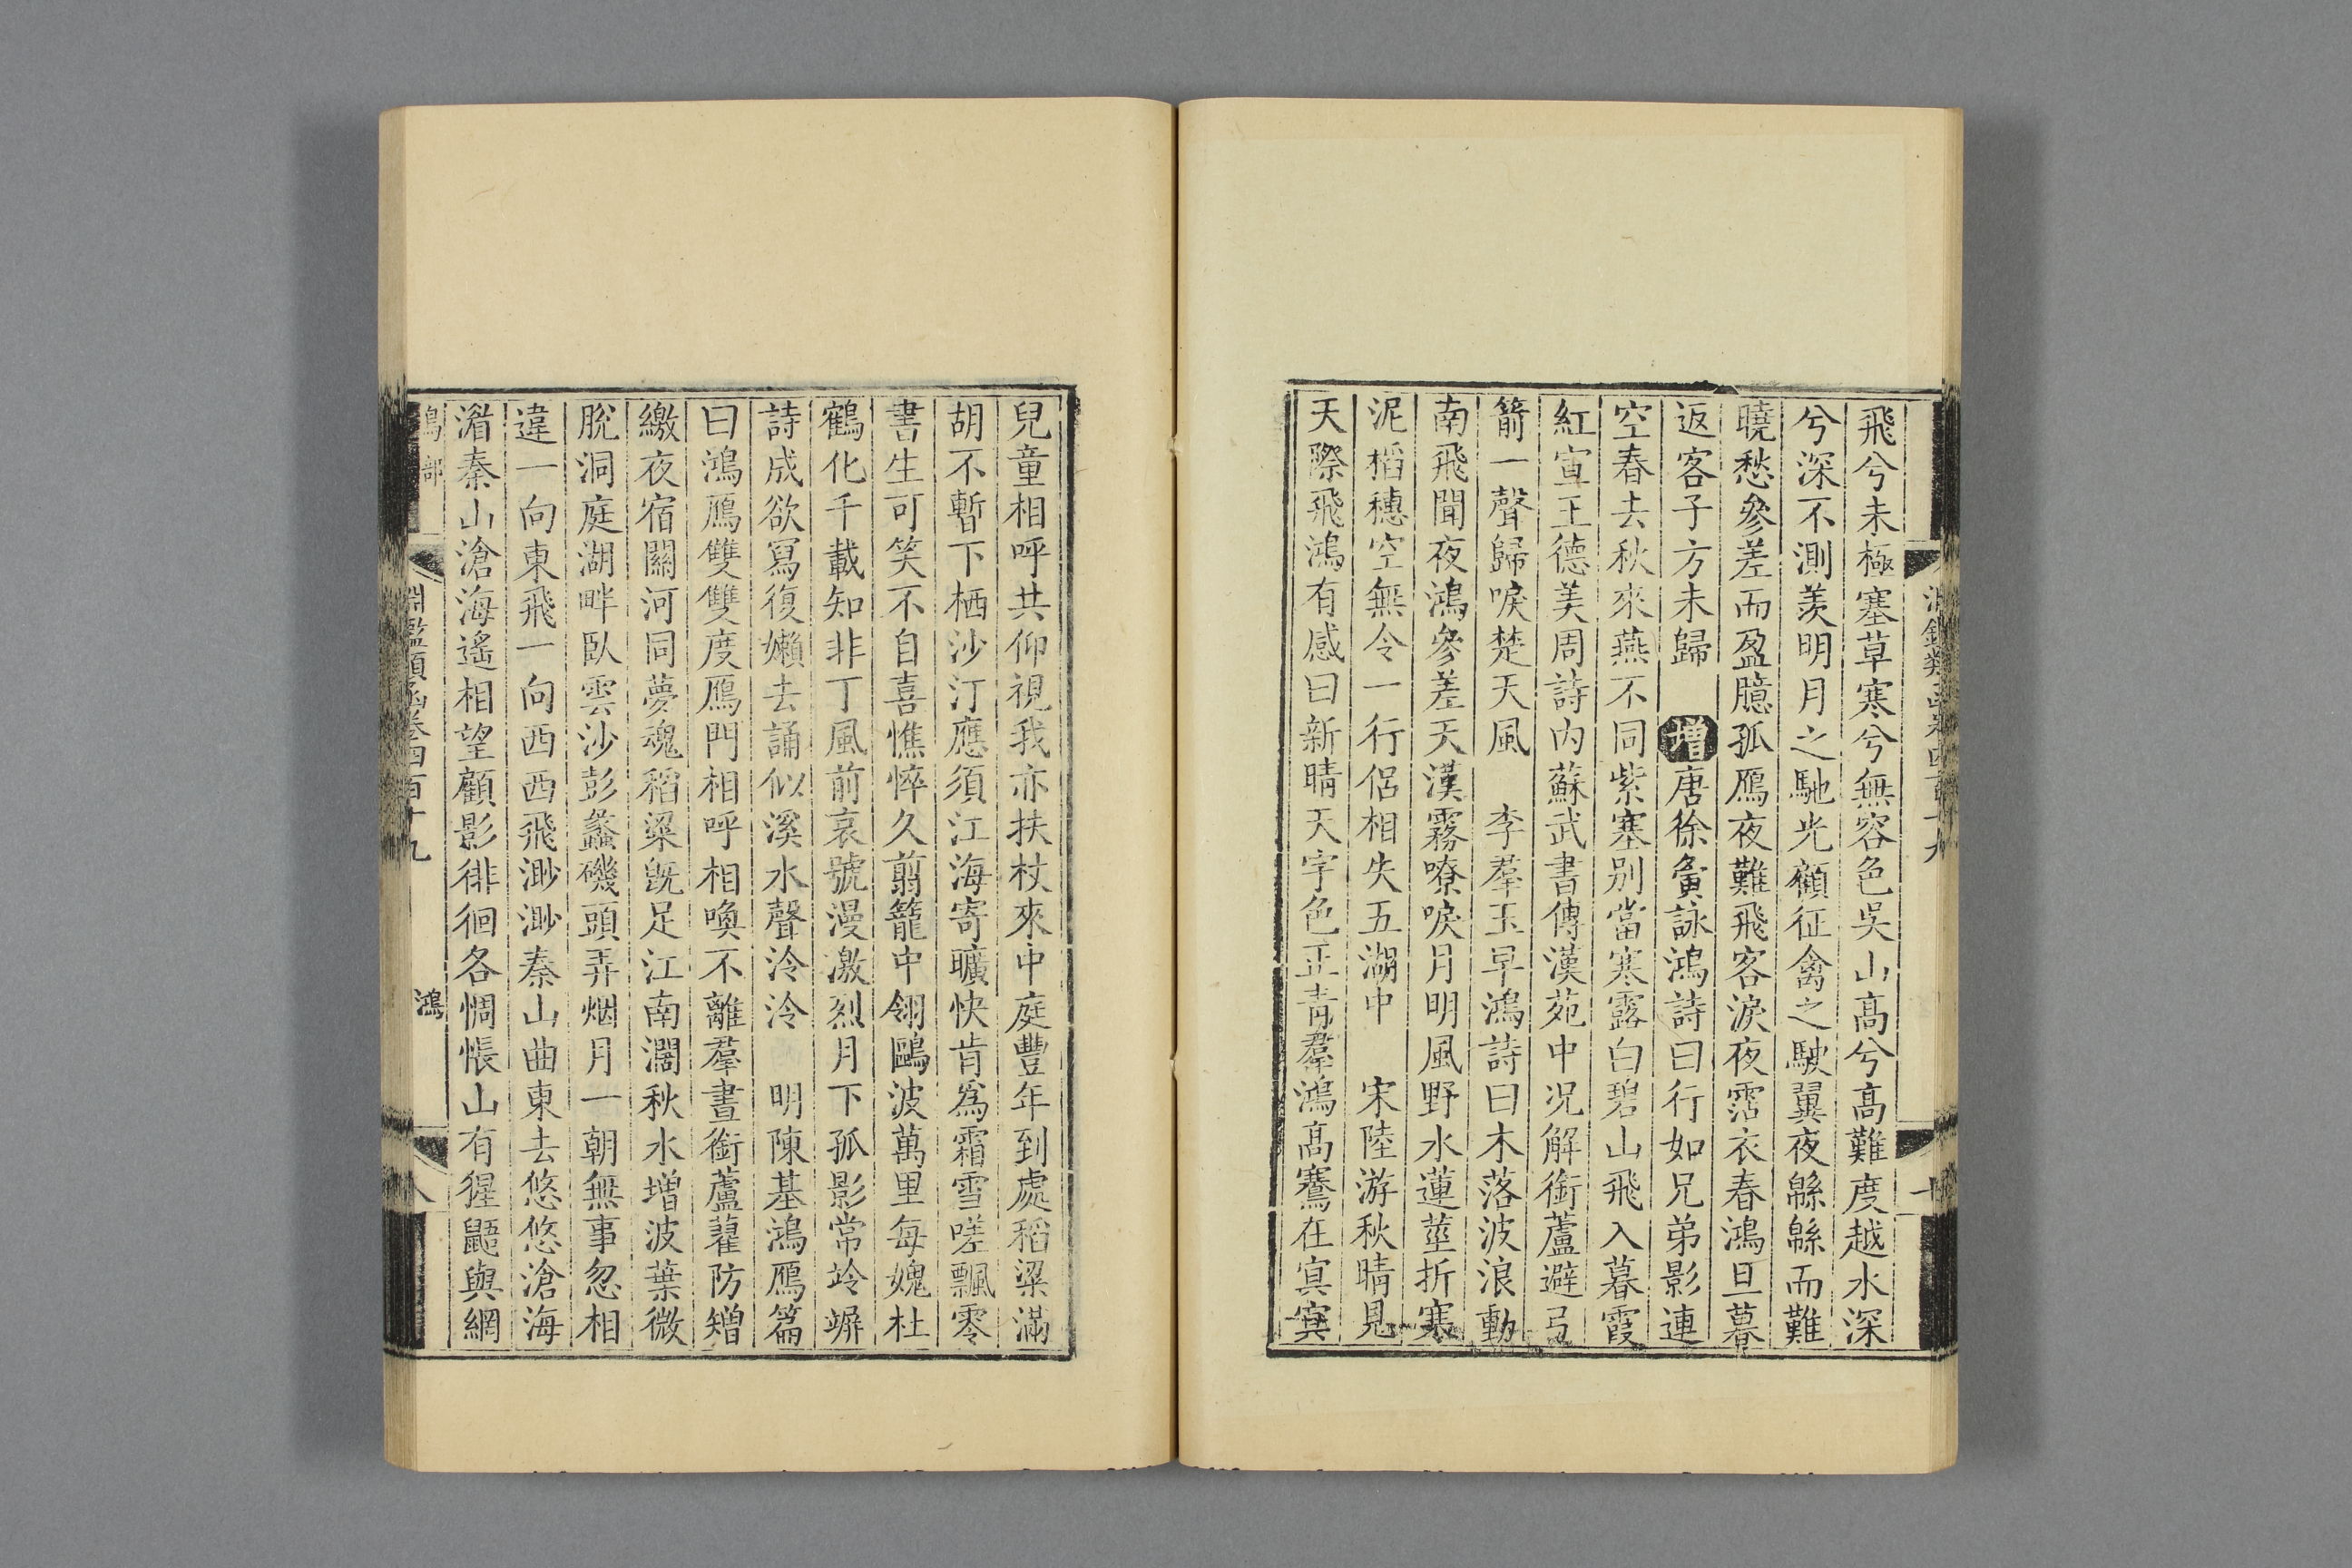 飛兮未極塞草寒兮無容色吳山高兮高難度越水深
兮深不測羨明月之馳光顧征禽之駛翼夜緜緜而難
曉愁參差而盈臆孤鴈夜難飛客淚夜霑衣春鴻旦暮
返客子方未歸 增唐徐夤詠鴻詩曰行如兄弟影連
空春去秋來燕不同紫塞別當寒露白碧山飛入暮霞
紅宣王德美周詩內蘇武書傳漢苑中況解銜蘆避弓
箭一聲歸唳楚天風 李羣玉早鴻詩曰木落波浪動
南飛聞夜鴻參差天漢霧嘹唳月明風野水蓮莖折寒
泥稻穗空無令一行侶相失五湖中 宋陸游秋晴見
天際飛鴻有感曰新晴天宇色正青羣鴻高騫在寘寘
兒童相呼共仰視我亦扶杖來中庭豐年到處稻粱滿
胡不暫下栖沙汀應須江海寄曠快肯為霜雪嗟飄零
書生可笑不自喜憔悴久翦籠中翎鷗波萬里每媿杜
鶴化千載知非丁風前哀號漫激烈月下孤影常竛竮
詩成欲寫復嬾去誦似溪水聲泠泠 明陳基鴻鴈篇
曰鴻鴈雙雙度鴈門相呼相喚不離羣晝銜蘆藋防矰
繳夜宿關河同夢魂稻粱旣足江南濶秋水增波葉微
脫洞庭湖畔臥雲沙彭蠡磯頭弄烟月一朝無事忽相
違一向東飛一向西西飛渺渺秦山曲東去悠悠滄海
湝秦山滄海遙相望顧影徘徊各惆悵山有猩鼯與網
鳥部
淵鑑類函卷四百十九
鴻